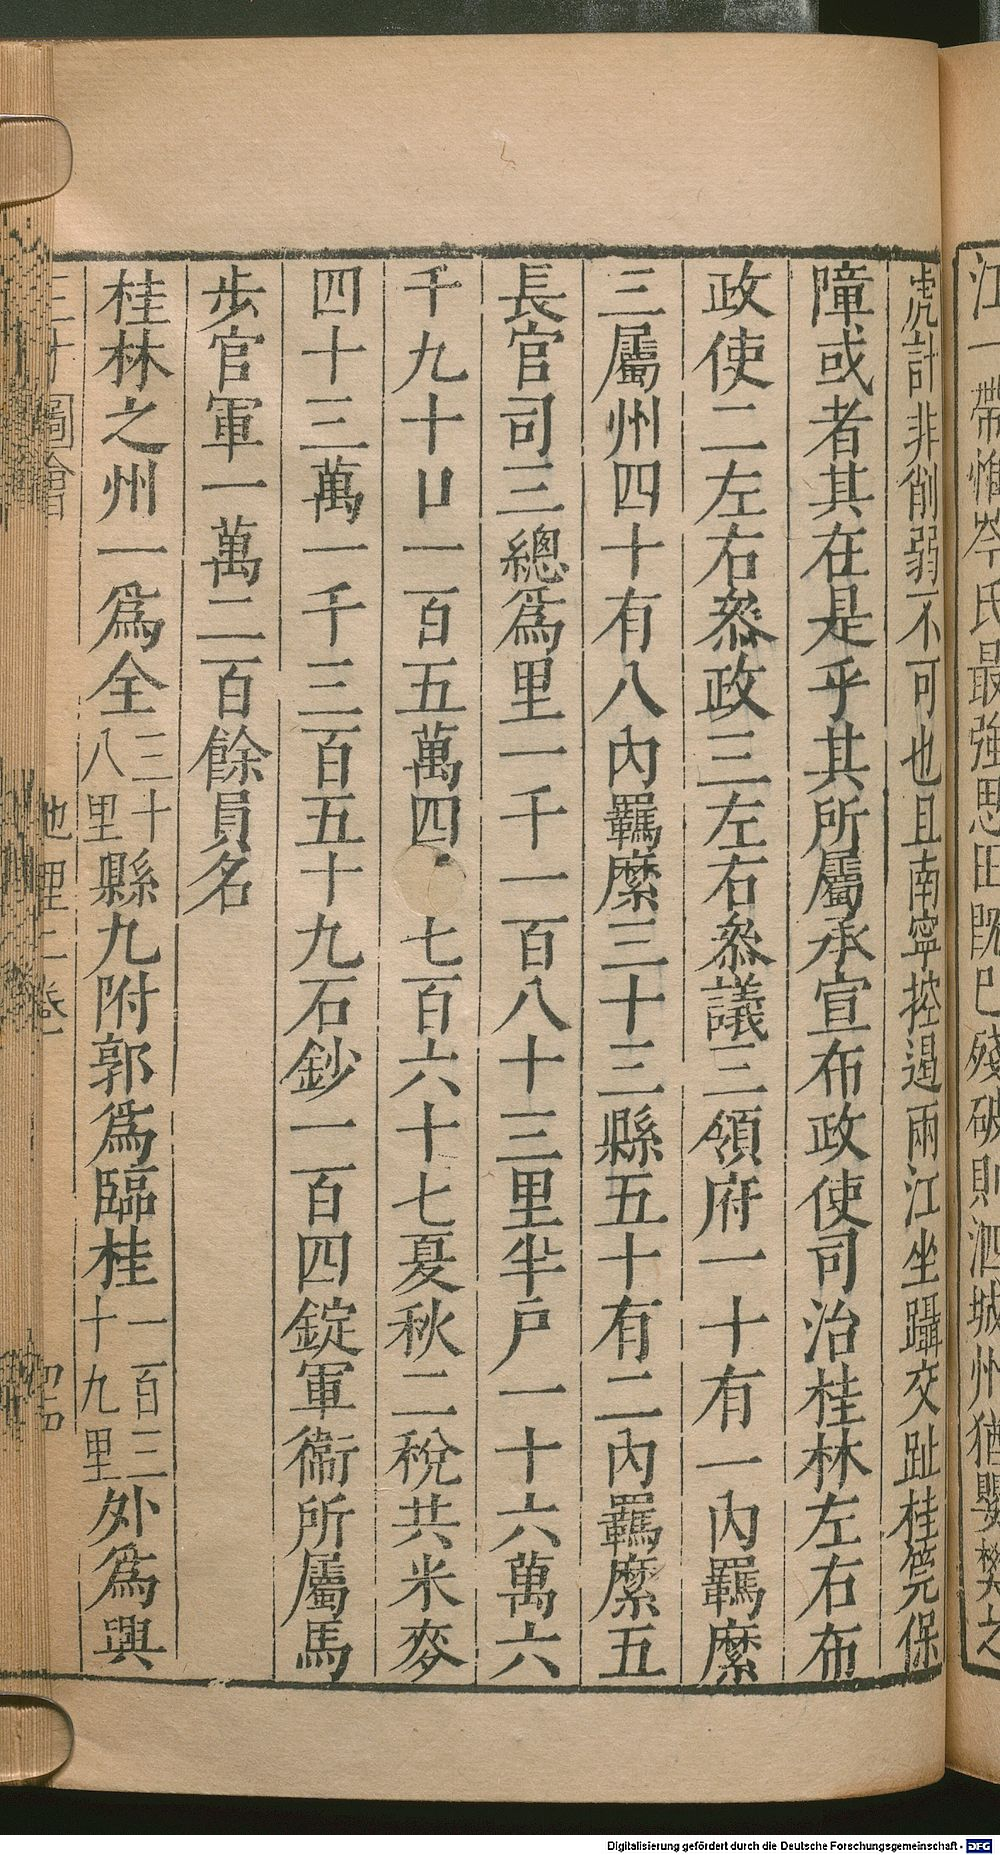 江一帶惟岑氏最強思田旣巴殘破則泗城州猶嬰樊之
虎計非削弱不可也且南寧控逼兩江坐躡交趾桂筦保
障或者其在是乎其所屬承宣布政使司治桂林左右布
政使二左右叅政三左右叅議三領府一十有一內羈縻
三屬州四十有八內羈縻三十三縣五十有二內羈縻五
長官司三總爲里一千一百八十三里半戶一十六萬六
千九十口一百五萬四 七百六十七夏秋二稅共米麥
四十三萬一千三百五十九石鈔一百四錠軍衞所屬馬
步官軍一萬二百餘員名
桂林之州一爲全三十八里縣九附郭爲臨桂一百三十九里外爲興
三才圖會 地理二卷
Digitalisierung gefördert durch die Deutsche Forschungsgemeinschaft - DFG